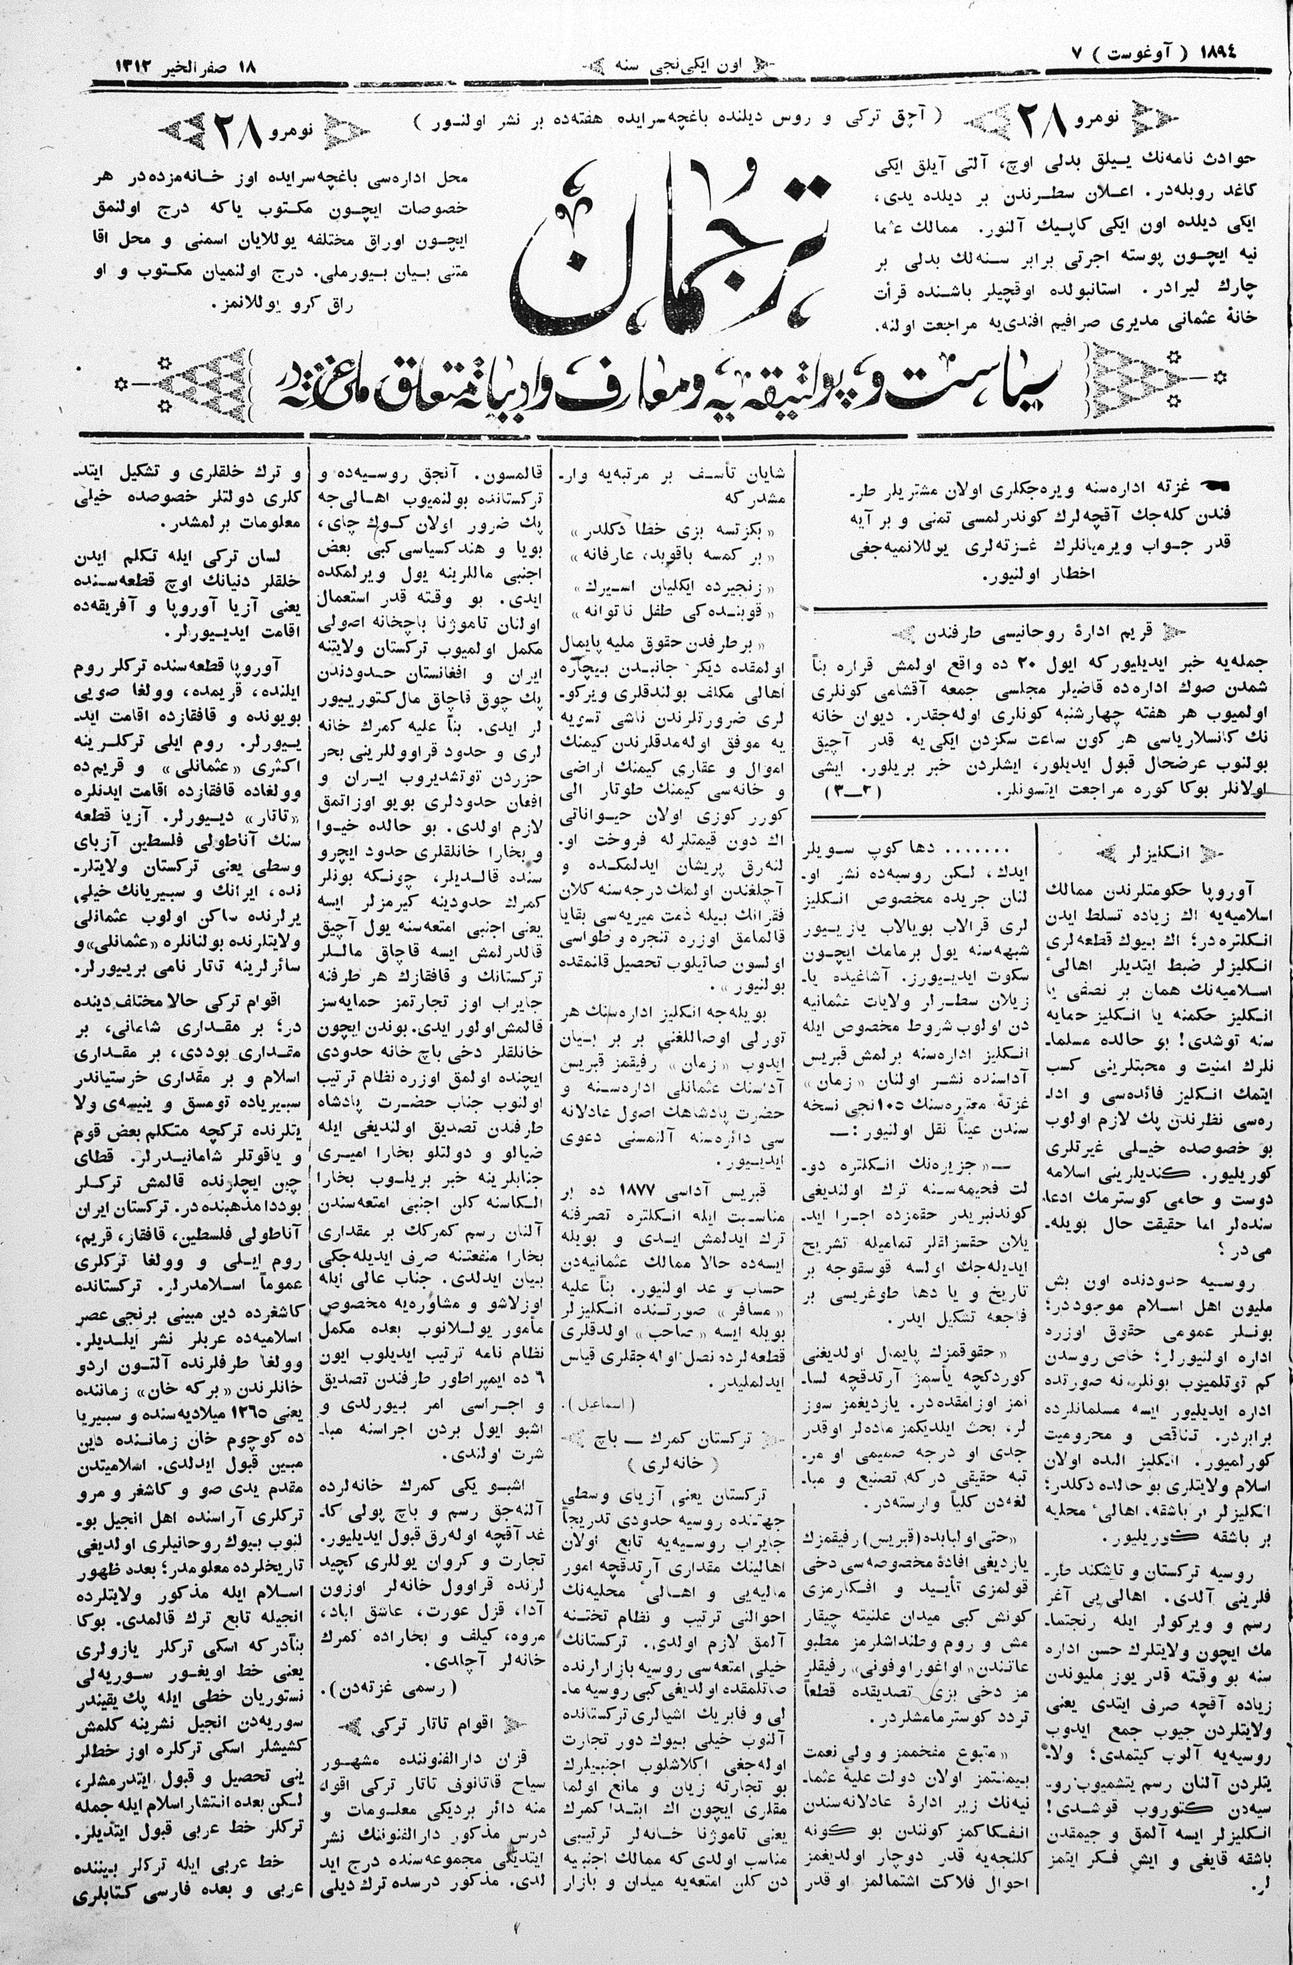 ١٨٩٤ ( آوغوست ) ٧
اون ایكی‌نجی سنه
١٨ صفر الخیر ١٣١٢
نومرو ٢٨
( آچق تركی و روس دیلنده باغچه‌سرایده هفته‌ده بر نشر اولنور )
نومرو ٢٨
حوادث نامه‌نك ییلق بدلی اوچ، آلتی آیلق ایكی
كاغد روبله‌در. اعلان سطرندن بر دیلده یدی،
ایكی دیلده اون ایكی كاپیك آلنور. ممالك عثما
نیه ایچون پوسته اجرتی برابر سنه‌لك بدلی بر
چارك لیرادر. استانبولده اوقچیلر باشنده قرأت
خانهٔ عثمانی مدیری صرافیم افندی‌یه مراجعت اولنه.
ترجمان
محل اداره‌سی باغچه‌سرایده اوز خانه‌مزده‌در هر
خصوصات ایچون مكتوب یاكه درج اولنمق
ایچون اوراق مختلفه یوللایان اسمنی و محل اقا
متنی بیان بیورملی. درج اولنمیان مكتوب و او
راق كرو یوللانمز.
سیاست و پولتیقه‌یه و معارف و ادبیاته متعلق ملی غزته‌در
غزته اداره‌سنه ویره‌جكلری اولان مشتریلر طر‍ـ
فندن كله‌جك آقچه‌لرك كوندرلمسی تمنی و بر آیه
قدر جواب ویرمیانلرك غزته‌لری یوللانمیه‌جغی
اخطار اولنیور.
قریم ادارهٔ روحانیسی طرفندن
جمله‌یه خبر ایدیلیوركه ایول ٢٠ ده واقع اولمش قراره بنأ
شمدن صوك اداره‌ده قاضیلر مجلسی جمعه آقشامی كونلری
اولمیوب هر هفته چهارشنبه كونلری اوله‌جقدر. دیوان خانه
نك كانسلاریاسی هر كون ساعت سكزدن ایكی‌یه قدر آچیق
بولنوب عرضحال قبول ایدیلور، ایشلردن خبر بریلور. ایشی
اولانلر بوكا كوره مراجعت ایتسونلر. (٢—٣)
انكلیزلر
آوروپا حكومتلرندن ممالك
اسلامیه‌یه اك زیاده تسلط ایدن
انكلتره‌در؛ اك بیوك قطعه‌لری
انكلیزلر ضبط ایتدیلر اهالیٔ
اسلامیه‌نك همان بر نصفی یا
انكلیز حكمنه یا انكلیز حمایه
سنه توشدی! بو حالده مسلما‍ـ
نلرك امنیت و محبتلرینی كسب
ایتمك انكلیز فائده‌سی و ادا‍ـ
ره‌سی نظرندن پك لازم اولوب
بو خصوصده خیلی غیرتلری
كوریلیور. كندیلرینی اسلامه
دوست و حامی كوسترمك ادعا
سنده‌لر اما حقیقت حال بویله‍ـ
می‌در ؟
روسیه حدودنده اون بش
ملیون اهل اسلام موجوددر؛
بونلر عمومی حقوق اوزره
اداره اولنیورلر؛ خاص روسدن
كم توتلمیوب بونلر نه صورتده
اداره ایدیلیور ایسه مسلمانلرده
برابردر. تناقص و محرومیت
كورلمیور. انكلیز النده اولان
اسلام ولایتلری بو حالده دكلدر؛
انكلیزلر ار باشقه، اهالیٔ محلیه
بر باشقه كوریلیور.
روسیه تركستان و تاشكند طر‍ـ
فلرینی آلدی. اهالی‌یی آغر
رسم و ویركولر ایله رنجتما‍ـ
مك ایچون ولایتلرك حسن اداره
سنه بو وقته قدر یوز ملیوندن
زیاده آقچه صرف ایتدی یعنی
ولایتلردن جیوب جمع ایدوب
روسیه‌یه آلوب كیتمدی؛ ولا‍ـ
یتلردن آلنان رسم یتشمیوب رو‍ـ
سیه‌دن كتوروب قوشدی!
انكلیزلر ایسه آلمق و جیمقدن
باشقه قایغی و ایش فكر ایتمز
لر.
....... دها كوپ سویلر
ایدك، لكن روسیه‌ده نشر او‍ـ
لنان جریده مخصوص انكلیز
لری قرالاب بویالاب یازیور
شبهه‌سنه یول برمامك ایچون
سكوت ایدیورز. آشاغیده یا‍ـ
زیلان سطرلر ولایات عثمانیه
دن اولوب شروط مخصوص ایله
انكلیز اداره‌سنه برلمش قبریس
آداسنده نشر اولنان «زمان»
غزتهٔ معتبره‌سنك ١٠٥نجی نسخه
سندن عیناً نقل اولنیور: —
— «جزیره‌نك انكلتره دو‍ـ
لت فخیمه‌سنه ترك اولندیغی
كوندنبریدر حقمزده اجرا اید‍ـ
یلان حقسزلقلر تمامیله تشریح
ایدیله‌جك اولسه قوسقوجه بر
تاریخ و یا دها طوغریسی بر
فاجعه تشكیل ایدر.
«حقوقمزك پایمال اولدیغی
كوردكچه یأسمز آرتدقچه لسا‍ـ
نمز اوزامقده‌در. یازدیغمز سوز
لر، بحث ایلدیكمز ماده‌لر اوقدر
جدی او درجه صمیمی او مر‍ـ
تبه حقیقی دركه تصنیع و مبا‍ـ
لغه‌دن كلیاً وارسته‌در.
«حتی اولبابده (قبریس) رفیقمزك
یازدیغی افادهٔ مخصوصه‌سی دخی
قولمزی تأیید و افكارمزی
كونش كبی میدان علنیته چیقار
مش و روم وطنداشلرمز مطبو
عاتندن «اواغور اوفونی» رفیقلر
مز دخی بزی تصدیقده قطعاً
تردد كوسترمامشلردر.
«متبوع مفخممز و ولی نعمت
بیمنتمز اولان دولت علیهٔ عثما‍ـ
نیه‌نك زیر ادارهٔ عادلانه‌سندن
انفكاكمز كوندن بو كونه
كلنجه‌یه قدر دوچار اولدیغمز
احوال فلاكت اشتمالمز او قدر
شایان تأسف بر مرتبه‌یه وار‍ـ
مشدر كه
«بكزتسه بزی خطا دكلدر»
«بر كمسه باقوبد، عارفانه»
«زنجیرده ایكلیان اسیرك»
«قوینده‌كی طفل ناتوانه»
«برطرفدن حقوق ملیه پایمال
اولمقده دیكر جانبدن بیچاره
اهالی مكلف بولندقلری ویركو‍ـ
لری ضرورتلرندن ناشی تسویه
یه موفق اوله‌مدقلرندن كیمنك
اموال و عقاری كیمنك اراضی
و خانه‌سی كیمنك طوتار الی
كورر كوزی اولان حیواناتی
اك دون قیمتلرله فروخت او‍ـ
لنه‌رق پریشان ایدلمكده و
آچلغندن اولمك درجه‌سنه كلان
فقرانك بیله ذمت میریه‌سی بقایا
قالمامق اوزره تنجره و طواسی
اولسون صاتیلوب تحصیل قلنمقده
بولنیور».
بویله‌جه انكلیز اداره‌سنك هر
تورلی اوصاللغنی بر بر بیان
ایدوب «زمان» رفیقمز قبریس
آداسنك عثمانلی اداره‌سنه و
حضرت پادشاهك اصول عادلانه
سی دائره‌سنه آلنمسنی دعوی
ایدیور.
قبریس آداسی ١٨٧٧ ده بر
مناسبت ایله انكلتره تصرفنه
ترك ایدلمش ایدی و بویله
ایسه‌ده حالا ممالك عثمانیه‌دن
حساب و عد اولنیور. بنأ علیه
«مسافر» صورتنده انكلیزلر
بویله ایسه «صاحب» اولدقلری
قطعه‌لرده نصل اوله‌جقلری قیاس
ایدلملیدر.
(اسماعیل).
تركستان كمرك — باچ
(خانه‌لری)
تركستان یعنی آزیای وسطی
جهتنده روسیه حدودی تدریجاً
جایراب روسیه‌یه تابع اولان
اهالینك مقداری آرتدقچه امور
مالیه‌یی و اهالیٔ محلیه‌نك
احوالنی ترتیب و نظام تختنه
آلمق لازم اولدی. تركستانك
خیلی امتعه‌سی روسیه بازارلرنده
صاتلمقده اولدیغی كبی روسیه ما‍ـ
لی و فابریك اشیالری تركستانده
آلنوب خیلی بیوك دور تجارت
اوله‌جغی اكلاشلوب اجنبیلرك
بو تجارته زیان و مانع اولما
مقلری ایچون اك ابتدا كمرك
یعنی تاموژنا خانه‌لر ترتیبی
مناسب اولدی كه ممالك اجنبیه
دن كلن امتعه‌یه میدان و بازار
قالمسون. آنجق روسیه‌ده و
تركستانده بولنمیوب اهالی‌جه
پك ضرور اولان كوك چای،
بویا و هند كسیاسی كبی بعض
اجنبی ماللرینه یول ویرلمكده
ایدی. بو وقته قدر استعمال
اولنان تاموژنا باچخانه اصولی
مكمل اولمیوب تركستان ولایتنه
ایران و افغانستان حدودندن
پك چوق قاچاق مال كتوریور
لر ایدی. بنأ علیه كمرك خانه
لری و حدود قراووللرینی بحر
حزردن توتشدیروب ایران و
افغان حدودلری بویو اوزاتمق
لازم اولدی. بو حالده خیوا
و بخارا خانلقلری حدود ایچرو
سنده قالدیلر، چونكه بونلر
كمرك حدودینه كیرمزلر ایسه
یعنی اجنبی امتعه‌سنه یول آچیق
قالدرلمش ایسه قاچاق ماللر
تركستانك و قافقازك هر طرفنه
جایراب اوز تجارتمز حمایه‌سز
قالمش اولور ایدی. بوندن ایچون
خانلقلر دخی باچ خانه حدودی
ایچنده اولمق اوزره نظام ترتیب
اولنوب جناب حضرت پادشاه
طرفندن تصدیق اولندیغی ایله
ضیالو و دولتلو بخارا امیری
جنابلرینه خبر بریلوب بخارا
الكاسنه كلن اجنبی امتعه‌سندن
آلنان رسم كمركك بر مقداری
بخارا منفعتنه صرف ایدیله‌جكی
بیان ایدلدی. جناب عالی ایله
اوزلاشو و مشاوره‌یه مخصوص
مأمور یوللانوب بعده مكمل
نظام نامه ترتیب ایدیلوب ایون
٦ ده ایمپراطور طرفندن تصدیق
و اجراسی امر بیورلدی و
اشبو ایول بردن اجراسنه مبا‍ـ
شرت اولندی.
اشبو یكی كمرك خانه‌لرده
آلنه‌جق رسم و باچ پولی كا‍ـ
غد آقچه اوله‌رق قبول ایدیلیور.
تجارت و كروان یوللری كچید
لرنده قراوول خانه‌لر اوزون
آدا، قزل عورت، عاشق اباد،
مروه، كیلف و بخاراده كمرك
خانه‌لر آچلدی.
(رسمی غزته‌دن).
اقوام تاتار تركی
قزان دارالفنوننده مشهور
سیاح قاتانوف تاتار تركی اقوا‍ـ
منه دائر بردیكی معلومات و
درس مذكور دارالفنوننك نشر
ایتدیكی مجموعه‌سنده درج اید
لدی. مذكور درسده ترك دیلی
و ترك خلقلری و تشكیل ایتد‍ـ
كلری دولتلر خصوصده خیلی
معلومات برلمشدر.
لسان تركی ایله تكلم ایدن
خلقلر دنیانك اوچ قطعه‌سنده
یعنی آزیا آوروپا و آفریقه‌ده
اقامت ایدیورلر.
آوروپا قطعه‌سنده تركلر روم
ایلنده، قریمده، وولغا صویی
بویونده و قافقازده اقامت اید‍ـ
یورلر. روم ایلی تركلرینه
اكثری «عثمانلی» و قریم‌ده
وولغاده قافقازده اقامت ایدنلره
«تاتار» دیورلر. آزیا قطعه
سنك آناطولی فلسطین آزیای
وسطی یعنی تركستان ولایتلر‍ـ
نده، ایرانك و سیبریانك خیلی
یرلرنده ساكن اولوب عثمانلی
ولایتلرنده بولنانلره «عثمانلی» و
سائرلرینه تاتار نامی بریورلر.
اقوام تركی حالا مختلف دینده
در؛ بر مقداری شامانی، بر
مقداری بوددی، بر مقداری
اسلام و بر مقداری خرستیاندر
سیبریاده تومسق و ینیسه‌ی ولا
یتلرنده تركچه متكلم بعض قوم
و یاقوتلر شامانیدرلر. قطای
چین ایچلرنده قالمش تركلر
بوددا مذهبنده در. تركستان ایران
آناطولی فلسطین، قافقاز، قریم،
روم ایلی و وولغا تركلری
عموماً اسلامدرلر. تركستانده
كاشغرده دین مبینی برنجی عصر
اسلامیه‌ده عربلر نشر ایلدیلر.
وولغا طرفلرنده آلتون اردو
خانلرندن «بركه خان» زماننده
یعنی ١٢٦٥ میلادیه‌سنده و سیبریا
ده كوچوم خان زماننده دین
مبین قبول ایدلدی. اسلامیتدن
مقدم یدی صو و كاشغر و مرو
تركلری آراسنده اهل انجیل بو‍ـ
لنوب بیوك روحانیلری اولدیغی
تاریخلرده معلومدر؛ بعده ظهور
اسلام ایله مذكور ولایتلرده
انجیله تابع ترك قالمدی. بوكا
بنأدركه اسكی تركلر یازولری
یعنی خط اویغور سوریه‌لی
نستوریان خطی ایله پك یقیندر
سوریه‌دن انجیل نشرینه كلمش
كشیشلر اسكی تركلره اوز خطلر
ینی تحصیل و قبول ایتدرمشلر،
لكن بعده انتشار اسلام ایله جمله
تركلر خط عربی قبول ایتدیلر.
خط عربی ایله تركلر بیننده
عربی و بعده فارسی كتابلری